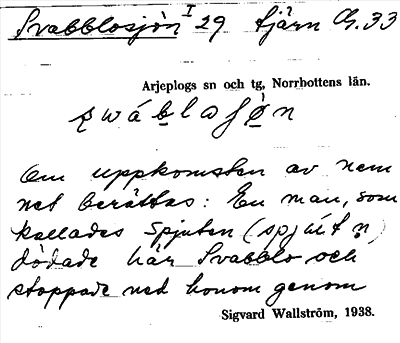 Svabblosjön I 29 tjärn Ch. 33
Arjeplogs sn och tg, Norrbottens län.
Om uppkomsten av nam
net berättas: En man, som
kallades Spjuten (spjút n)
dödade här Svabblo och
stoppade ned honom genom
Sigvard Wallström, 1938.